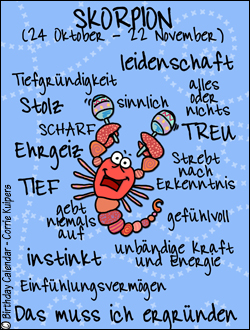 SKORPION
(24 Oktober - 22 November)
leidenschaft
Tiefgründigkeit
alles
oder
nichts
Stolz
sinnlich
SCHARF
TREU
Ehrgeiz
Strebt
nach
Erkenntnis
TIEF
gebt
niemals
auf
gefühlvoll
instinkt
unbändige Kraft
und Energie
Einfühlungsvermögen
Das muss ich ergründen
© Birthday Calendar - Corrie Kuipers